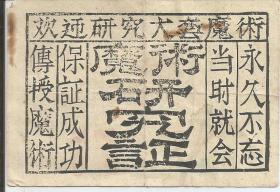 欢迎研究大魔術
永久不忘
当时就会
魔術
研究証
保証成功
傳授魔術